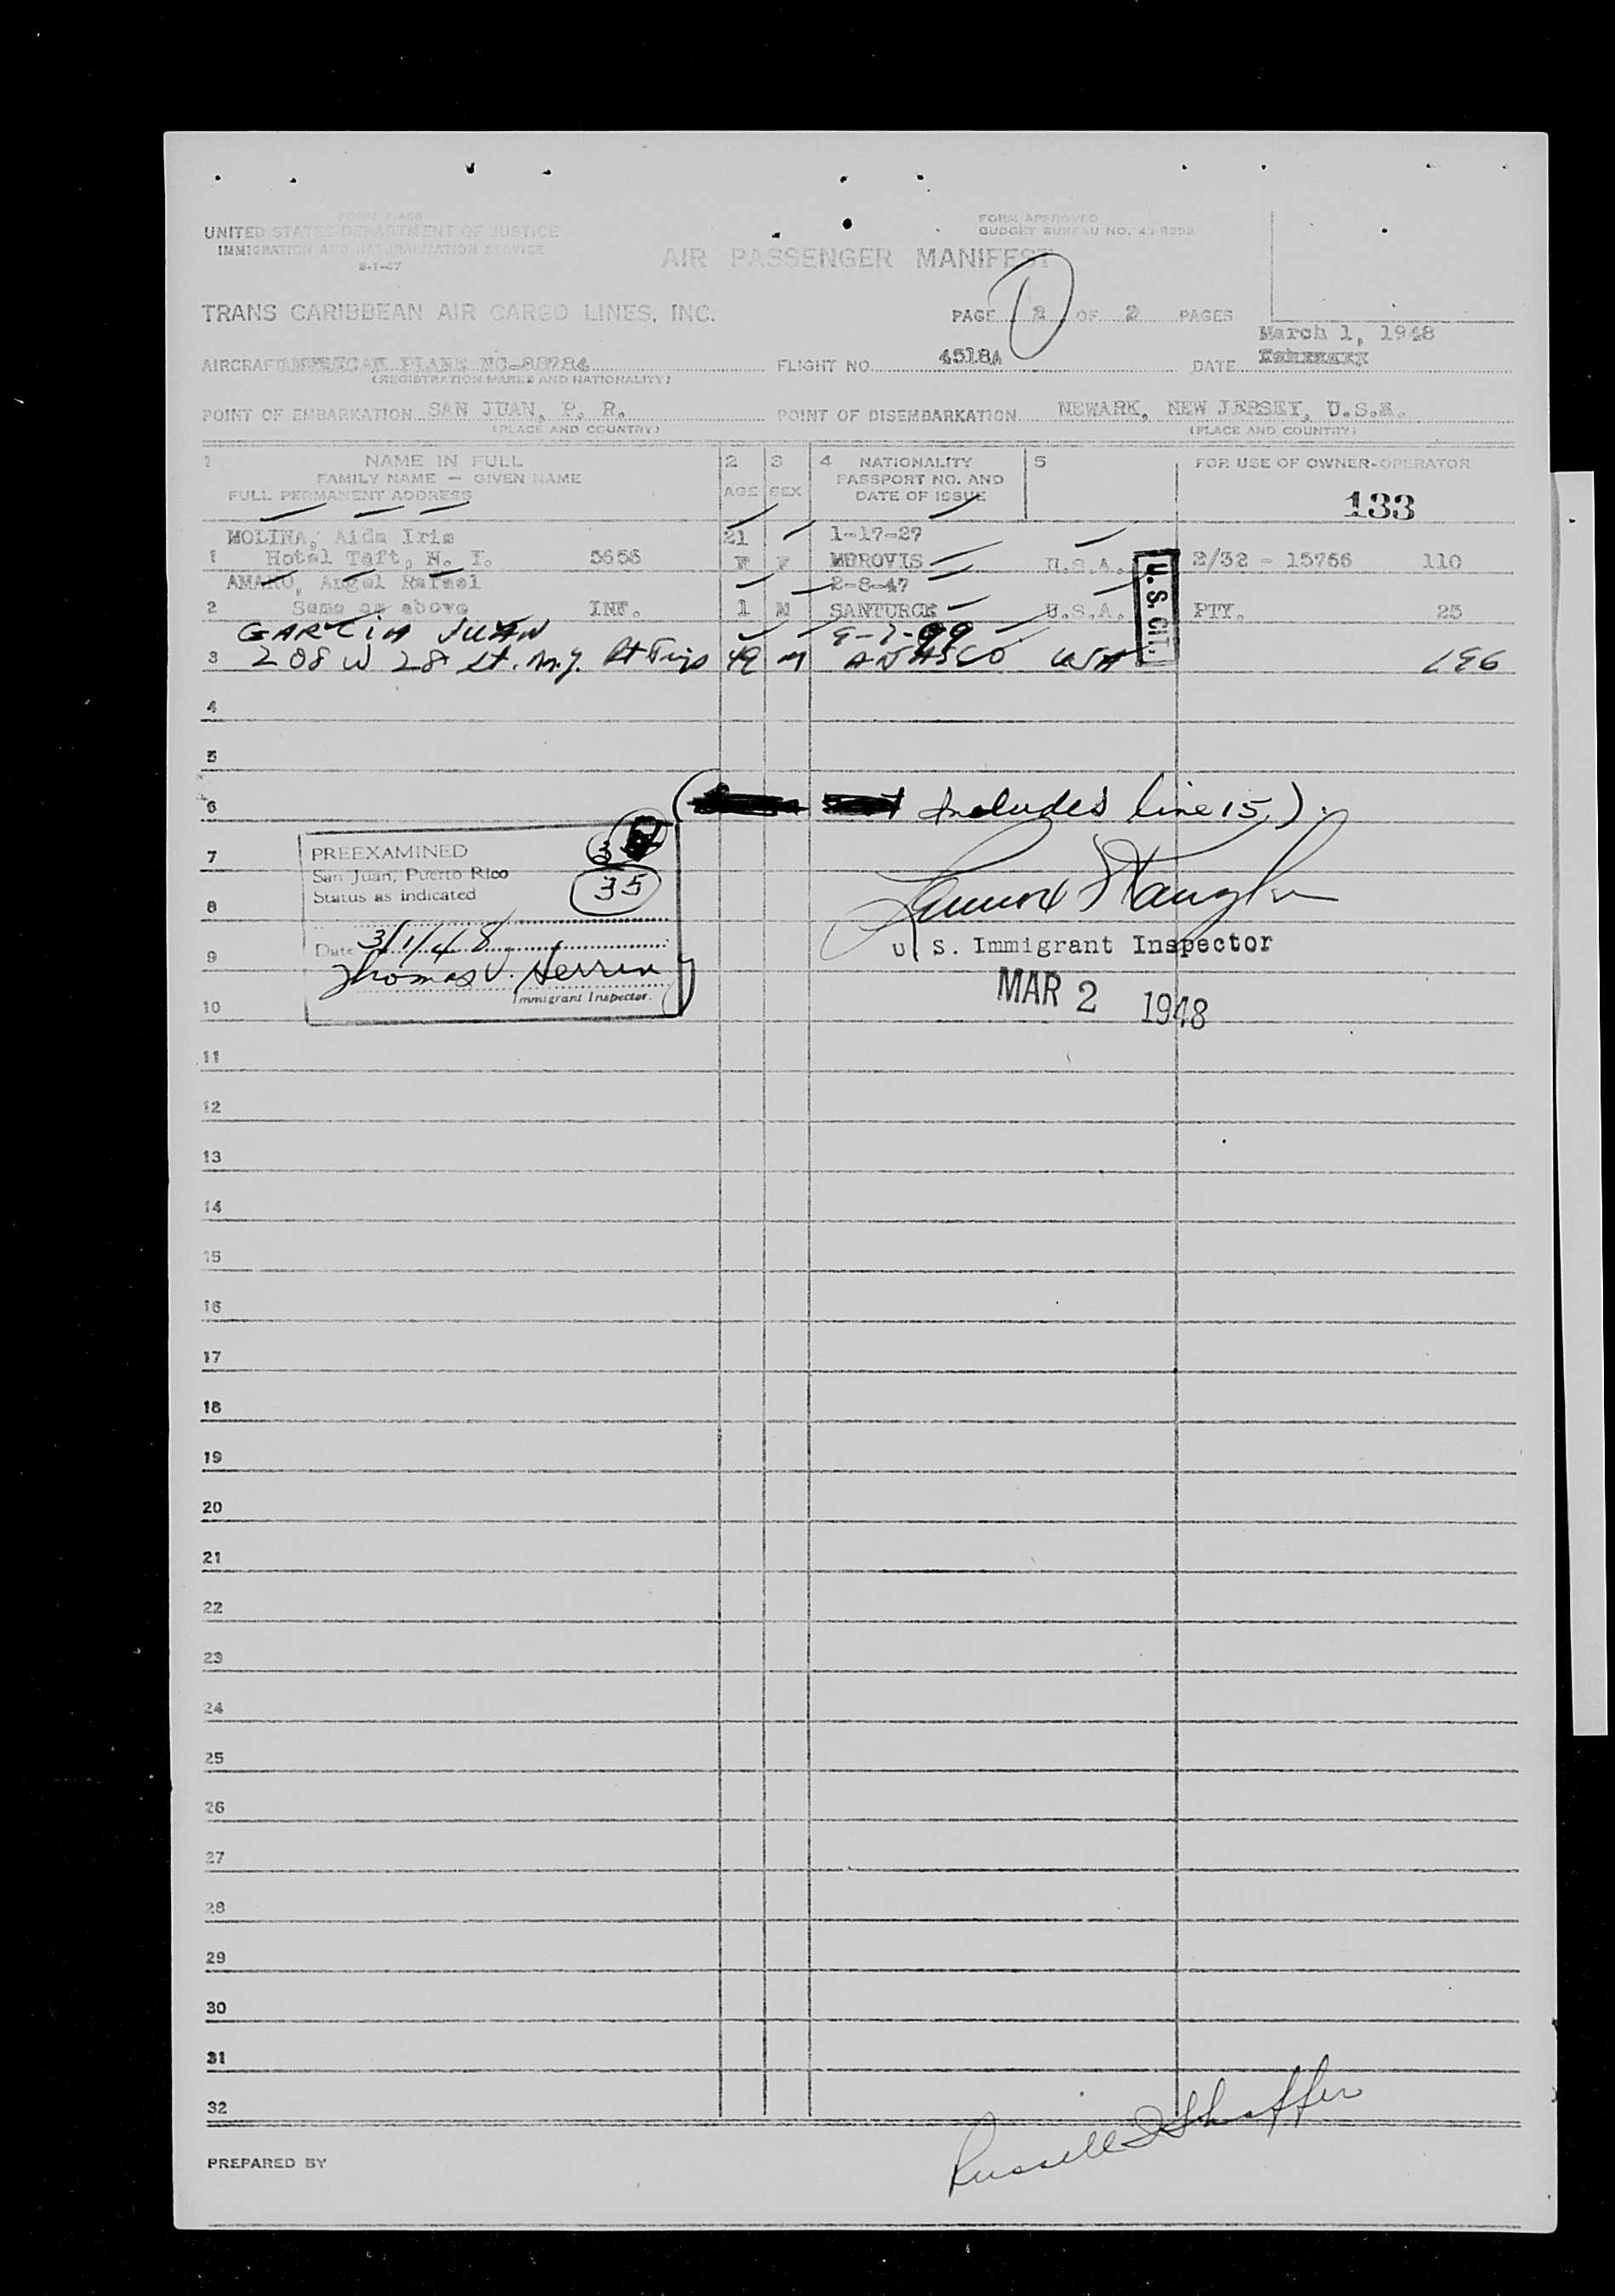 FORM I-466
UNITED STATES DEPARTMENT OF JUSTICE
IMMIGRATION AND NATURALIZATION SERVICE
FORM APPROVED
BUDGET BUREAU NO. 43-R292
AIR PASSENGER MANIFEST
TRANS CARIBBEAN AIR CARGO LINES, INC.
PAGE 2 OF 2 PAGES
March 1, 1948
AIRCRAFT AMERICAN PLANE NC-88784
FLIGHT NO. 4518A
DATE
(REGISTRATION MARKS AND NATIONALITY)
POINT OF EMBARKATION SAN JUAN, P. R.
POINT OF DISEMBARKATION NEWARK, NEW JERSEY, U.S.A.
(PLACE AND COUNTRY) (PLACE AND COUNTRY)
1 NAME IN FULL 2 3 4 NATIONALITY 5 FOR USE OF OWNER-OPERATOR
FAMILY NAME — GIVEN NAME PASSPORT NO. AND
FULL PERMANENT ADDRESS AGE SEX DATE OF ISSUE
133
MOLINA, Aida Iris 21 1-17-27
1 Hotel Taft, N. Y. 5658 F F MOROVIS U.S.A. 2/32 - 15766 110
AMARO, Angel Rafael 2-8-47
2 Same as above INF. 1 M SANTURCE U.S.A. PTY. 25
U.S. CIT.
GARCIA JUAN 9-7-99
3 208 W 28 St. N.Y. 49 M ANASCO USA 196
4
5
6 Includes line 15).
7 PREEXAMINED
San Juan, Puerto Rico
Status as indicated 35
8
Date 3/1/48
9 Thomas V. Herrin
Immigrant Inspector.
U. S. Immigrant Inspector
10 MAR 2 1948
11
12
13
14
15
16
17
18
19
20
21
22
23
24
25
26
27
28
29
30
31
32
Russell Shaffer
PREPARED BY